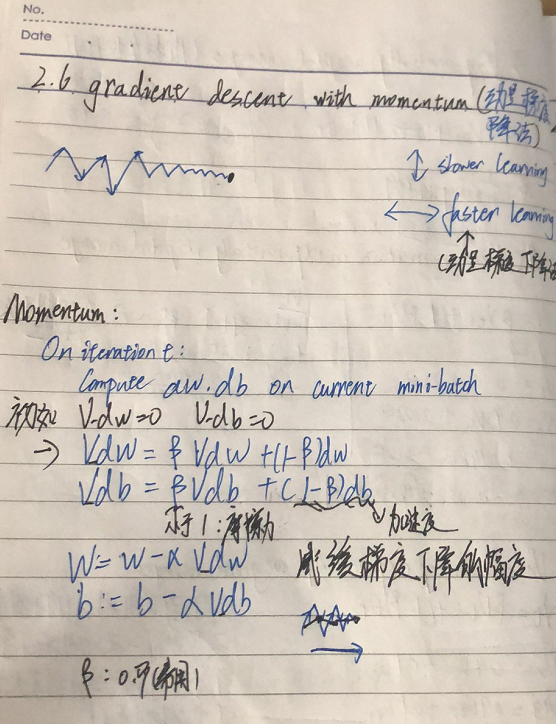 No.
Date
2.6 gradient descent with momentum (动量梯度
下降法)
↕ slower learning
↔ faster learning
↑
(动量梯度下降法
Momentum:
On iteration t:
Compute dw.db on current mini-batch
初始 V-dw=0 V-db=0
→ Vdw = β Vdw +(1-β)dw
Vdb = βVdb + (1-β)db
小于1:摩擦力 加速度
W = w-α Vdw 减缓梯度下降的幅度
b := b-αVdb
β: 0.9(常用)